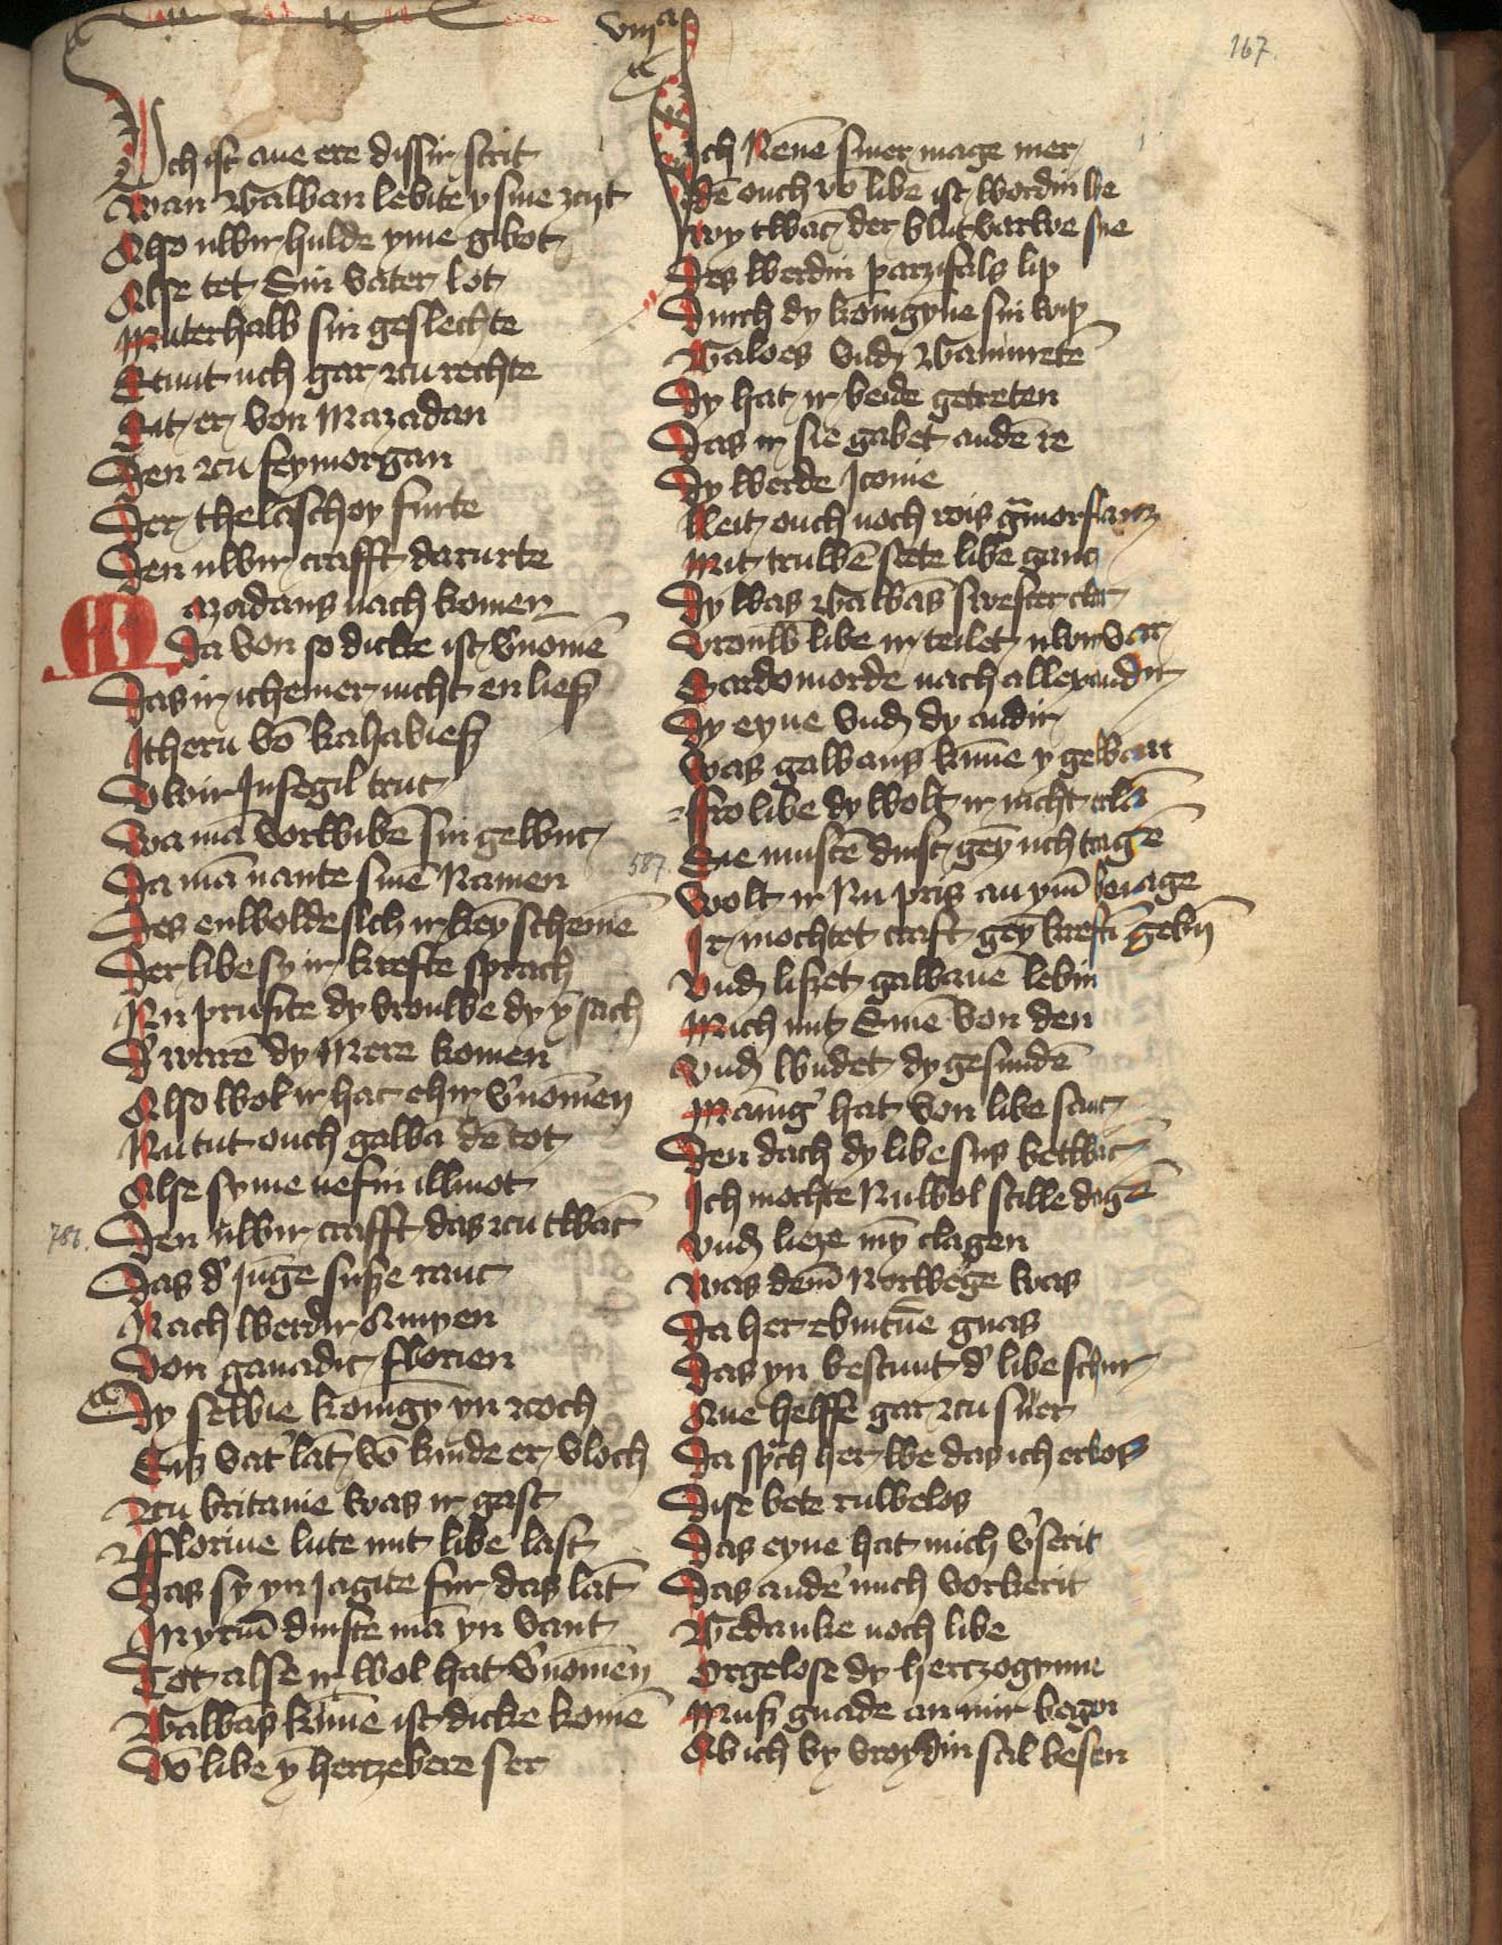 viija
167.
Vch ist ane ere dissir strit
Wan Gawan lebite y sine zcyt
Also uwir hulde yme gebot
Alse tet Sin vater lot
Muterhalb sin geslechte
Stunt uch gar zcu rechte
Sit er von Mazadan
Den zcu feymorgan
Der thelaschoy furte
Den uwir crafft darurte
Mazadans nach komen
Da von so dicke ist v'nomē
Das ir icheiner nicht en liesz
Ithern vō kahaviesz
Uwir Insegil truc
Wa mā vor wibē sin gewuc
Da mā nante sinē Namen
Des enwolde sich ir keȳ schemē
Der libe sy ir krefte sprach
Nu prufite dy vrouwe dy ȳ sach
D' warē dy Mere komen
Also wol ir hat ehir v'nomen
Nu tut ouch gawā dē tot
Alse syme nefin illinot
781.
Den uwir crafft das zcu twāc
Das d' jūge susze ranc
Nach werdir Amyen
Von ganadic florien
Dy selbie konigȳ yn zcoch
Sins vat' lāt vō kinde er vloch
Zcu britanie was ir gast
Florine lute mit libe last
Das sy yn Jagite fur das lāt
In yrm dinste mā yn vant
Tot alse ir wol hat v'nomen
Gawās kūne ist dicke komē
Vō libe ȳ hertzebere ser
Ich Nēne siner mage mer
dē ouch vō libe ist wordin we
wy twāc der blut varwe sne
Des werdin parzifals lip
Durch dy konigyne sin wip
Galoes vnd Gamuretē
Dy hat ir beide getreten
Das ir sie gabet an dē re
Dy werde Itonie
Leit ouch noch rois gmorflanz
Mit truwē stete libe ganz
Dy was Gawās swester clar
Vrouw libe ir teilet uwir var
Surdomorde nach allexandir
Dy eyne vnd dy andir
Was gawans kūne y gewan
Fro libe dy wolt ir nicht erlā
Sie mustē dinst gey uch tragē
587.
Wolt ir Nu pris an ym beiage
Ir mochtet craft gey kreftī gebin
Vnd liszet gawanē lebin
Mich mit Sinē von den
Vnd wūdet dy gesundē
Manig' hat von libe sanc
Den dach dy libe sus betwāc
Ich mochte Nu wol stille dagē
Vnd lieze my clagen
Was dem Norwege was
Da her ebintūe gnas
Das yn bestunt d' libe schur
Ane helffe gar zcu suer
Da sprch her we das ich erkos
Dise bete ruwelos
Das eyne hat mich v'serit
Das ande' mich vorkerit
Gedanke noch libe
Orgelose dy hertzogynne
Musz gnade an mir begen
Ab ich by vroydin sal besten